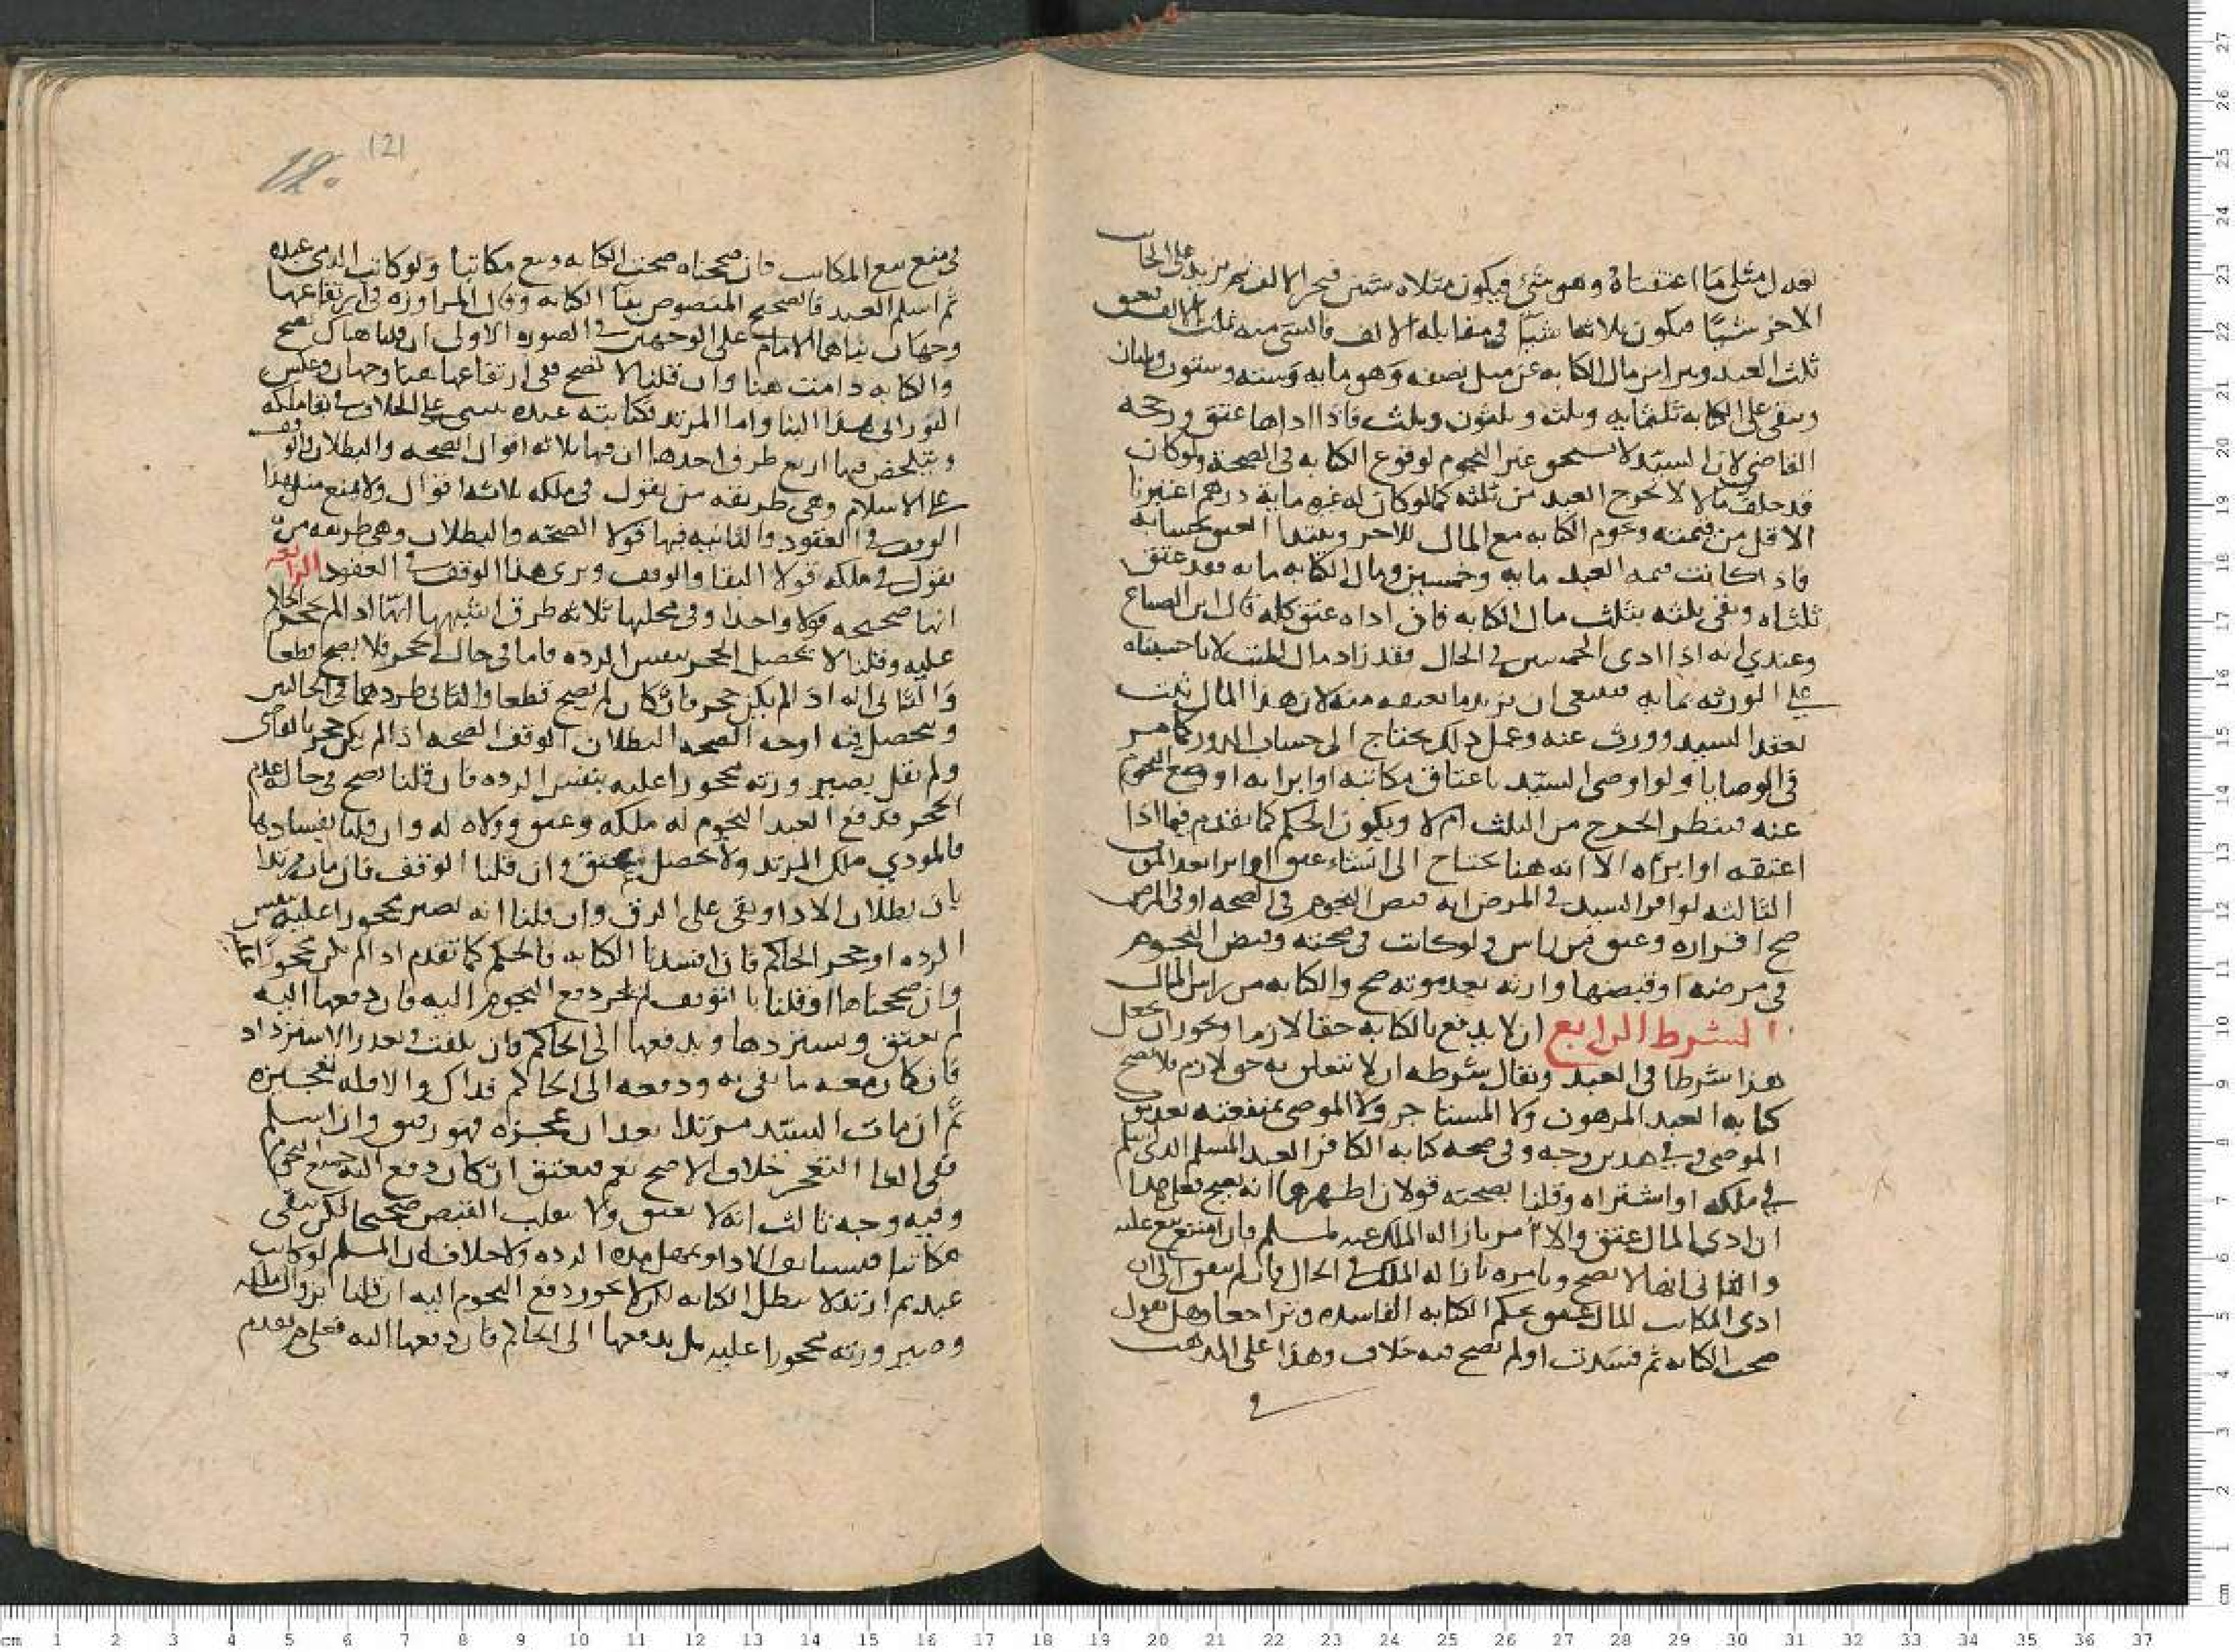 يعدل مثلي ما اعتقناه وهو شيء فيكون مثلاه شيئين فنجبر الالف
الاخر شيئا فيكون ثلاثة اشيا في مقابله الالف فالشي منه ثلث الالف
ثلث العبد ويبرا من مال الكتابه عن مثل نصفه وهو مايه وسته وستون وثلثان
ويبقى على الكتابه ثلثمايه وثلث وثلثون وثلث فاذا اداها عتق ورجحه
القاضي لان السيد لا يستحق غير النجوم لوقوع الكتابه في الصحة ولو كان
قد خلف مالا لا يخرج العبد من ثلثه كما لو كان له غيره مايه درهم اعتبرنا
الاقل من قيمته ونجوم الكتابه مع المال للاخر وينفذ العتق بحسابه
فاذا كانت قيمه العبد مايه وخمسين ومال الكتابه مايه فقد عتق
ثلثاه وبقى ثلثه بثلث مال الكتابه فان اداه عتق كله قال ابن الصباغ
وعندي انه اذا ادى الخمسين في الحال فقد زاد مال الميت لانا حسبناه
على الورثه بمايه فينبغى ان يزيد ما يعتق منه لان هذا المال ثلث
لعقد السيد وورث عنه وعمل ذلك يحتاج الى حساب الدور كما مر
في الوصايا ولو اوصى السيد باعتاق مكاتبه او ابرايه او وضع النجوم
عنه فينظر الخرج من الثلث ام لا ويكون الحكم كما تقدم فيما اذا
اعتقه او ابراه الا انه هنا يحتاج الى انشاء عتق او ابرا بعد الموت
الثالثه لو اقر السيد في المرض انه قبض النجوم في الصحه او في المرض
صح اقراره وعتق من راس ولو كاتب في صحته وقبض النجوم
في مرضه او قبضها وارثه بعد موته صح والكتابه من راس المال
الشرط الرابع ان لا يدفع بالكتابه حقا لازما ويجوز ان يجعل
هذا شرطا في العبد ويقال شرطه ان لا يتعلق به حق لازم فلا تصح
كتابه العبد المرهون ولا المستاجر ولا الموصى بمنفعته بعد موت
الموصى وفي هدين وجه وفي صحه كتابه الكافر العبد المسلم الذي اسلم
في ملكه او اشتراه وقلنا بصحته قولان اظهرهما انه يصح فعلى هذا
ان ادى المال عتق والا امر بازاله الملك عنه لمسلم فان امتنع بيع عليه
والثاني انها لا تصح ويامره بازاله الملك في الحال فان لم يتفق الى ان
ادى المكاتب المال عتق بحكم الكتابه الفاسده وتراجعا وهل نقول
صحت الكتابه ثم فسدت او لم تصح فيه خلاف وهذا على المذهب
في
في منع بيع المكاتب فان صححناه صحت الكتابه وبيع مكاتبا ولو كاتب الذمى عبده
ثم اسلم العبد فالصحيح المنصوص بقا الكتابه وقال المراوزه في ارتفاعها
وجهان بناهما الامام على الوجهين في الصوره الاولى ان قلنا هناك تصح
والكتابه دامت هنا وان قلنا لا تصح ففي ارتفاعها هنا وجهان وعكس
الفوراني هذا البنا واما المرتد فكتابته عبده ينبنى على الخلاف في بقا ملكه
ويتلخص فيها اربع طرق احدها ان فيها ثلاثه اقوال الصحه والبطلان والوقف
على الاسلام وهي طريقه من يقول في ملكه ثلاثه اقوال ولا يمنع مثل هذا
الوقف في العقود والثانيه فيها قولا الصحه والبطلان وهي طريقه من
يقول في ملكه قولا البقا والوقف ويرى هذا الوقف في العقود الرابعه
انها صحيحه قولا واحدا وفي محلها ثلاثه طرق اشبهها انها اذا لم يحجر الحاكم
عليه وقلنا لا يحصل الحجر بنفس الرده فاما في حال الحجر فلا يصح قطعا
والثاني انه اذا لم يكن حجر فان كان لم تصح قطعا والثالث طردهما في الحالين
ويحصل فيه اوجه الصحه البطلان الوقف الصحه اذا لم يكن حجر بالقاضى
ولم نقل بصيرورته محجورا عليه بنفس الرده فان قلنا تصح في حاله عدم
الحجر فدفع العبد النجوم له ملكه وعتق وولاه له وان قلنا بفسادها
فالمودي ملك المرتد ولا تحصل عتق وان قلنا الوقف فان مات مرتدا
بان بطلان الادا وبقى على الرق وان قلنا انه يصير محجورا عليه بنفس
الرده او حجر الحاكم فان افسدنا الكتابه فالحكم كما تقدم اذا لم يكن محجورا عليه
وان صححناها او قلنا بالتوقف لم يجز دفع النجوم اليه فان دفعها اليه
لم يعتق ويستردها ويدفعها الى الحاكم فان تلفت وتعذر الاسترداد
فان كان معه ما يفي به ودفعه الى الحاكم فذاك والا فله تعجيزه
ثم ان مات السيد مرتدا بعد ان عجزه فهو رقيق وان اسلم
ففي الغا التعجيز خلاف الاصح نعم فيعتق ان كان دفع اليه جميع النجوم
وفيه وجه ثالث انه لا يعتق ولا ينقلب القبض صحيحا لكن يبقى
مكاتبا فيستانف الادا ويمهل مده الرده ولا خلاف ان المسلم لو كاتب
عبده ثم ارتد لا تبطل الكتابه لكن لا يجوز دفع النجوم اليه ان قلنا بزوال ملكه
وصيرورته محجورا عليه بل يدفعها الى الحاكم فان دفعها اليه فعلى ما تقدم